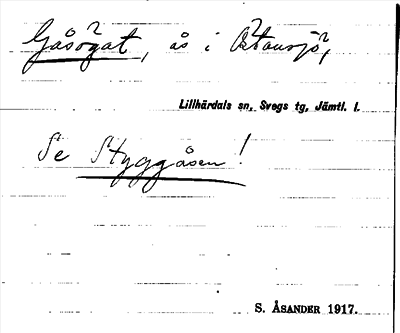 Gåsögat, ås i
Lillhärdals sn, Svegs tg, Jämtl. l.
Se Styggåsen!
S. ÅSANDER 1917.